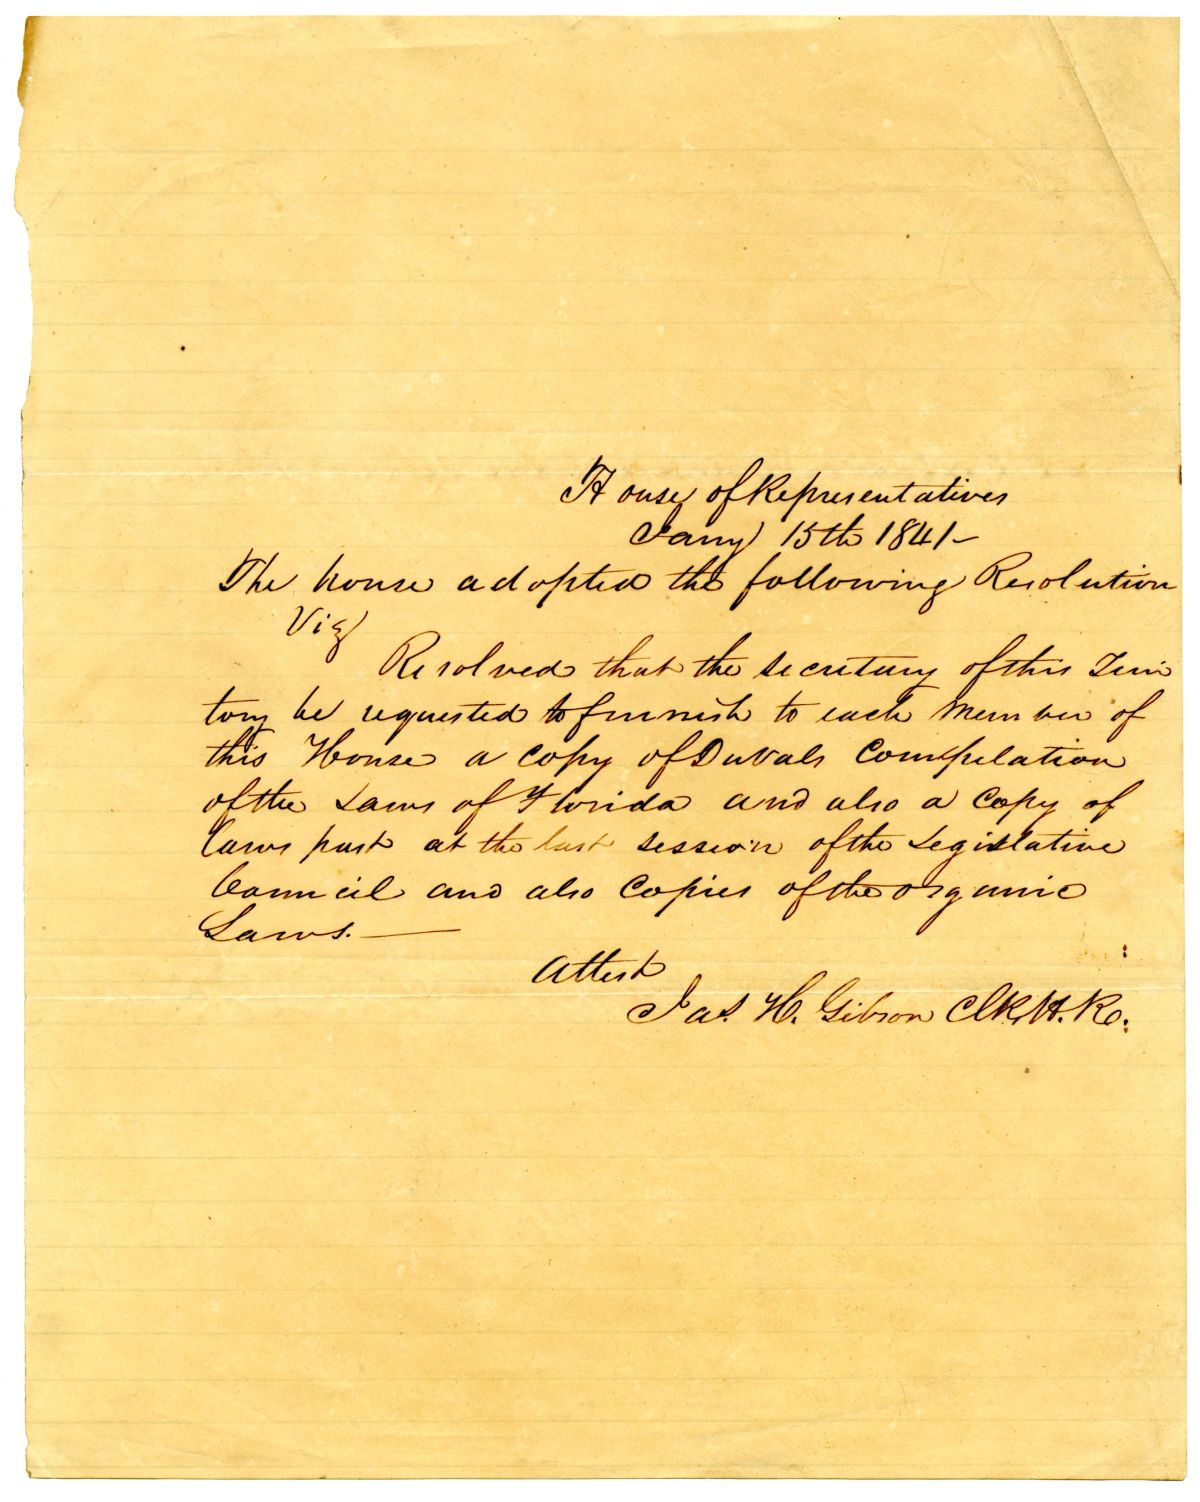 House of Representatives
Jany 15th 1841-
The house adopted the following Resolution
Viz
Resolved that the secretary of this Terri
tory be requested to furnish to each Member of
this House a copy of Duvals Compelation
of the Laws of Florida and also a Copy of
Laws past at the last session of the Legislative
Council and also Copies of the organic
Laws. —
Attest
Jas. H. Gibson Clk. H. R.